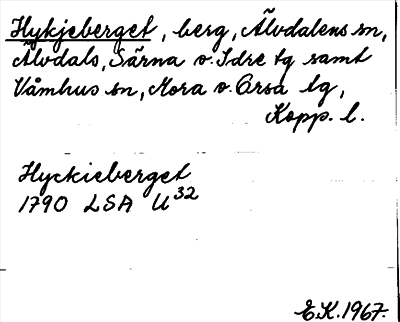 Hykjeberget, berg, Älvdalens sn,
Älvdals, Särna o. Idre tg samt
Våmhus sn, Mora o. Orsa tg,
Kopp. l.
Hyckieberget
1790 LSA U32
E.K. 1967.